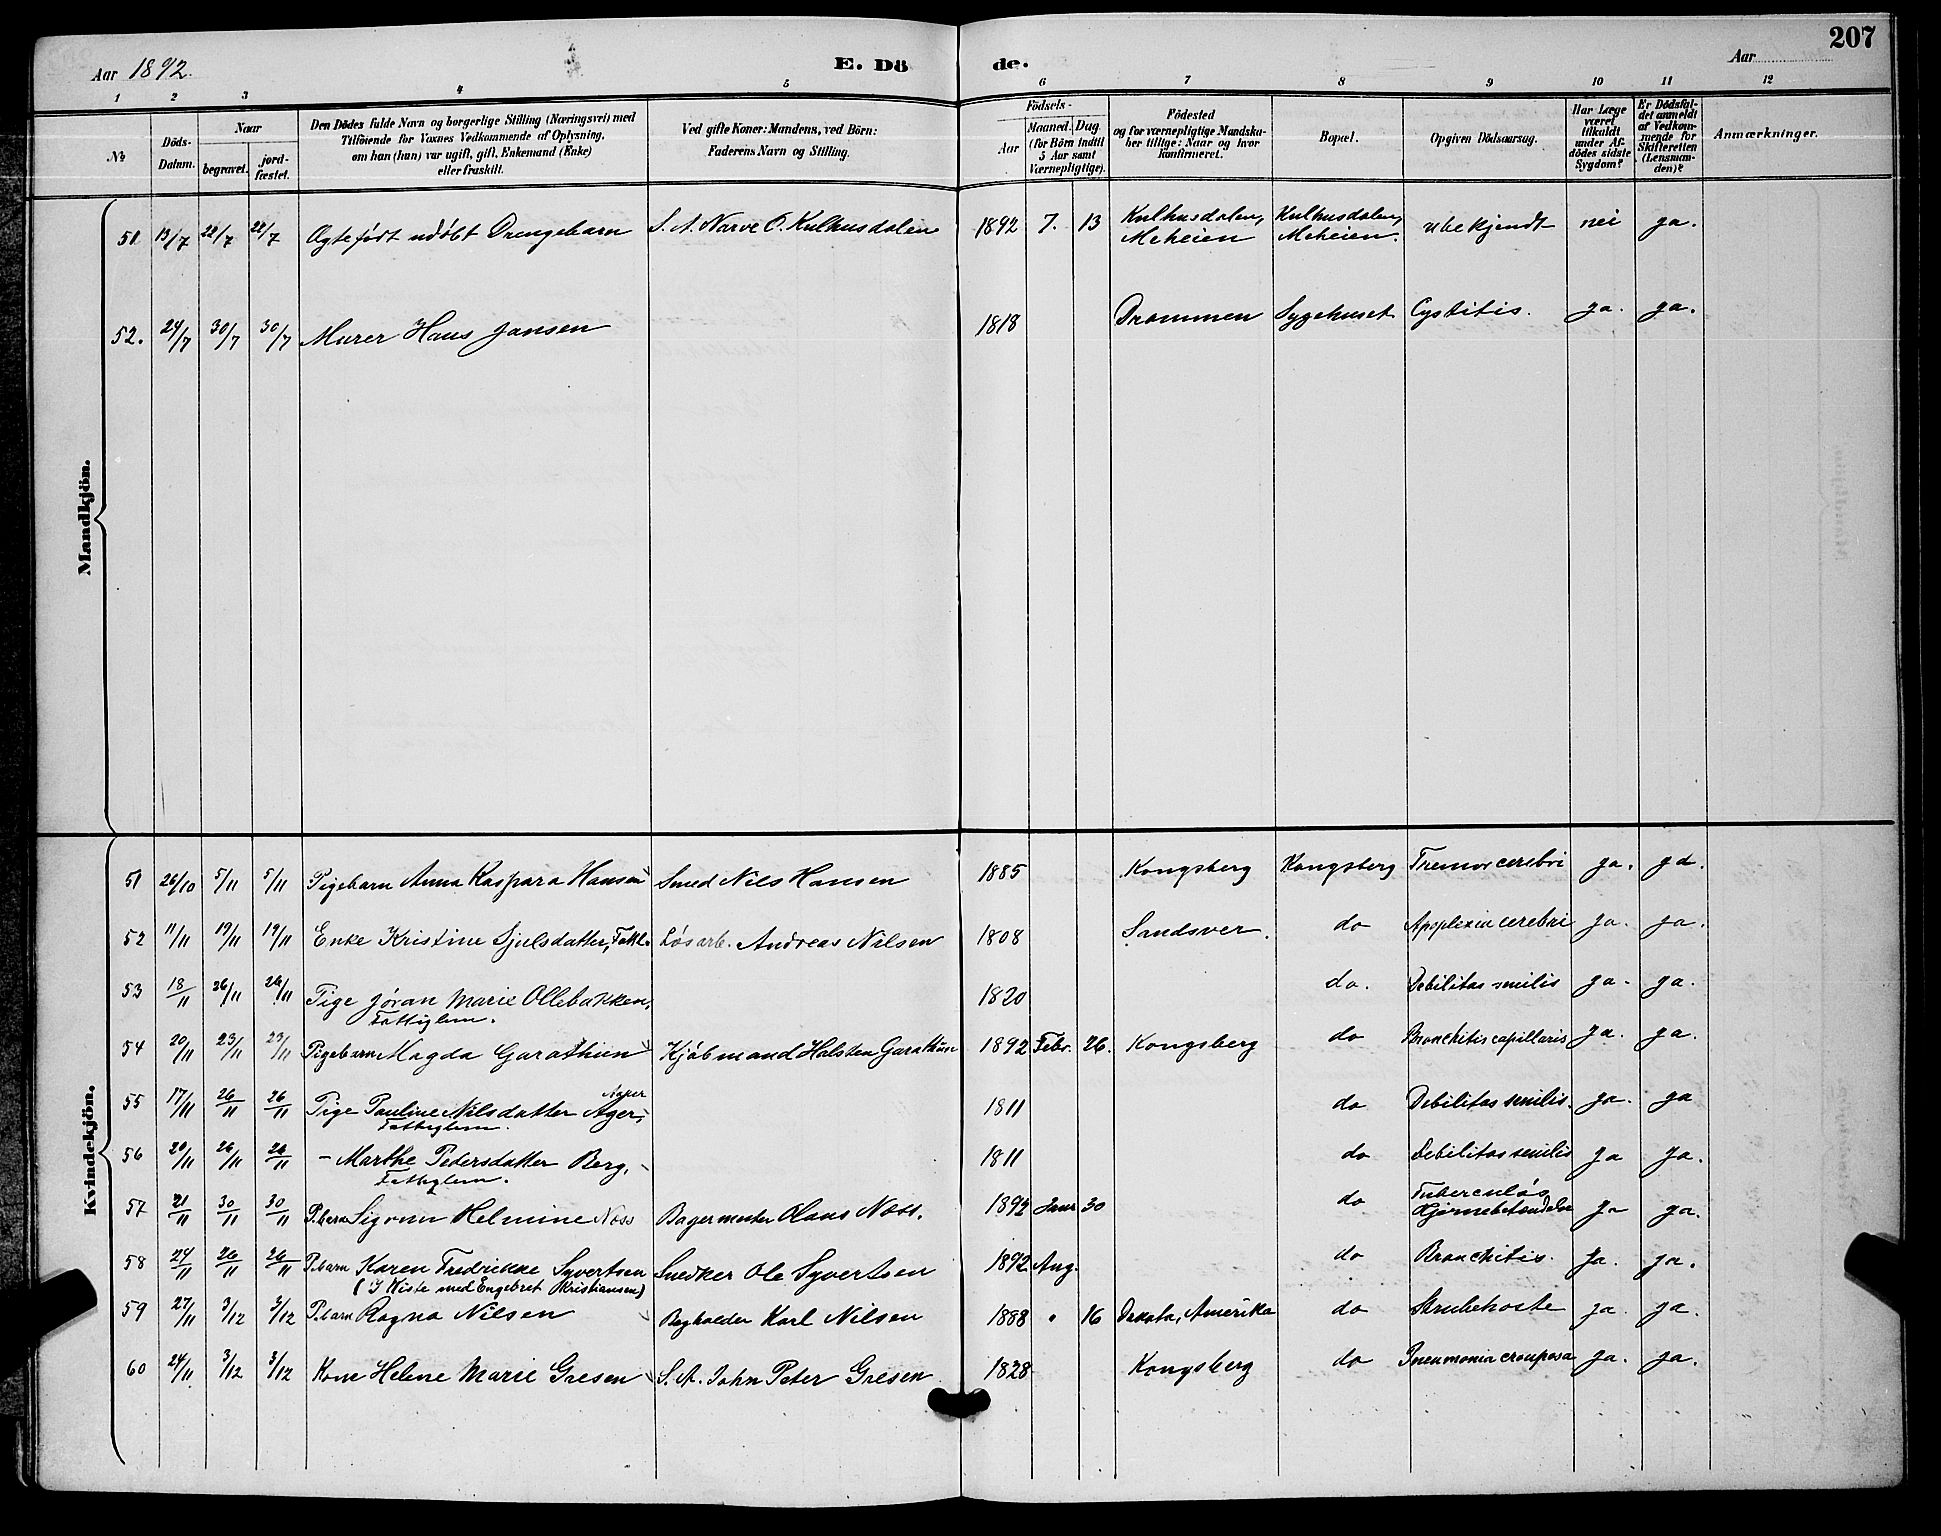 207
Aar 1892.
E. Dö
de.
Aar
1 2 3 4 5 6 7 8 9 10 11 12
№
Döds-
Datum.
Naar
begravet.
jord-
fæstet.
Den Dödes fulde Navn og borgerlige Stilling (Næringsvei) med
Tilföiende for Voxnes Vedkommende af Oplysning,
om han (hun) var ugift, gift, Enkemand (Enke)
eller fraskilt.
Ved gifte Koner: Mandens, ved Börn:
Faderens Navn og Stilling.
Födsels-
Aar
Maaned. Dag
(for Börn indtil
5 Aar samt
Værnepligtige).
Födested
og for værnepligtige Mandska-
ber tillige: Naar og hvor
konfirmeret.
Bopæl.
Opgiven Dödsaarsag.
Har Læge
været
tilkaldt
under Af-
dödes sidste
Sygdom?
Er Dödsfal-
det anmeldt
af Vedkom-
mende for
Skifteretten
(Lensman-
den)?
Anmærkninger.
Mandkjön.
51 13/7 22/7 22/7 Ægtefødt udöbt Drengebarn S. A. Narve O. Kulhusdalen 1892 7. 13 Kulhusdalen, Meheien Kulhusdalen, Meheien. Ubekjendt nei ja.
52. 24/7 30/7 30/7 Murer Hans Jansen 1818 Drammen Sygehuset Cystitis. ja. ja.
Kvindekjön.
51 26/10 5/11 5/11 Pigebarn Anna Kaspara Hansen Smed Nils Hansen 1885 Kongsberg Kongsberg cerebri ja. ja.
52 11/11 19/11 19/11 Enke Kristine Sjulsdatter, Løsarb. Andreas Nilsen 1808 Sandsver. do Apoplexia cerebri ja. ja.
53 18/11 26/11 26/11 Pige Jøran Marie Ollebakken, 1820 do. Debilitas senilis ja. ja.
Fattiglem.
54 20/11 23/11 23/11 Pigebarn Magda Garathun Kjøbmand Halsten Garathun 1892 Febr. 26. Kongsberg do Bronchitis capillaris ja. ja.
55 17/11 26/11 26/11 Pige Pauline Nilsdatter Ager, 1811 do Debilitas senilis. ja. ja
Fattiglem.
56 20/11 26/11 26/11 - Marthe Pedersdatter Berg, 1811 do Debilitas senilis ja ja.
Fattiglem.
57 21/11 30/11 30/11 P.barn Sigrun Helmine Næss Bagermester Olaus Næss. 1892 Janr 30 do Tuberculøs Hjernebetændelse ja ja.
58 24/11 26/11 26/11 P.barn Karen Fredrikke Syvertsen Snedker Ole Syvertsen 1892 Aug. do Bronchitis. ja. ja.
(I Kiste med Engebret Kristiansen)
59 27/11 3/12 3/12 P.barn Ragna Nilsen Bogholder Karl Nilsen 1888 " 16 Dakota, Amerika do Strubehoste ja. ja.
60 24/11 3/12 3/12 Kone Helene Marie Gresen S. A. John Peter Gresen 1828 Kongsberg do Pneumonia crouposa ja. ja.